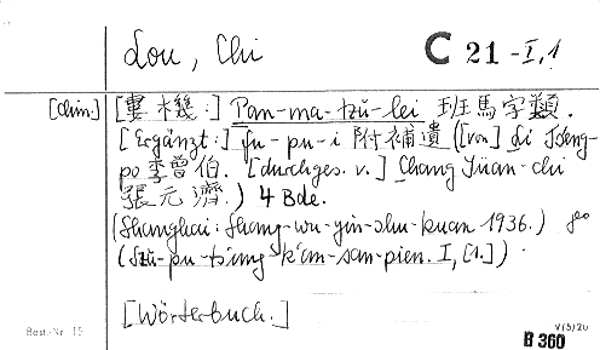 Lou, Chi
C 21 - I,1
[Chin.] [婁機:] Pan-ma-tzŭ-lei 班馬字類.
[Ergänzt:] fu-pu-i 附補遺 ([von] Li Tseng-
po 李曾伯. [durchges. v.] Chang Yüan-chi
張元濟.) 4 Bde.
(Shanghai: Shang-wu-yin-shu-kuan 1936.) 8°
(Szŭ-pu-ts'ung-k'an-san-pien. I,[1.])
[Wörterbuch.]
Best.-Nr. 15
V/5/20
B 360